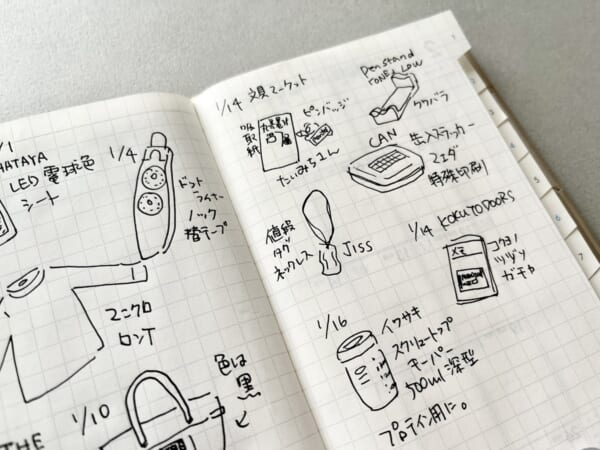 HATAYA
LED電球色
シート
1/4
ドット
ライナー
ノック
替テープ
ユニクロ
ロンT
1/10
色は
黒
THE
1/14 文具マーケット
吸取紙
ピンバッジ
たいみちさん
Pen stand
クツバラ
CAN
缶入クラッカー
フエダ
特殊印刷
値段
タグ
ネックレス
JISS
1/14 KOKUYO DOORS
メモ
コクヨノ
ツヅリ
ガチャ
1/16
イワサキ
スクリュートップ
キーパー
500ml 深型
プロテイン用に。